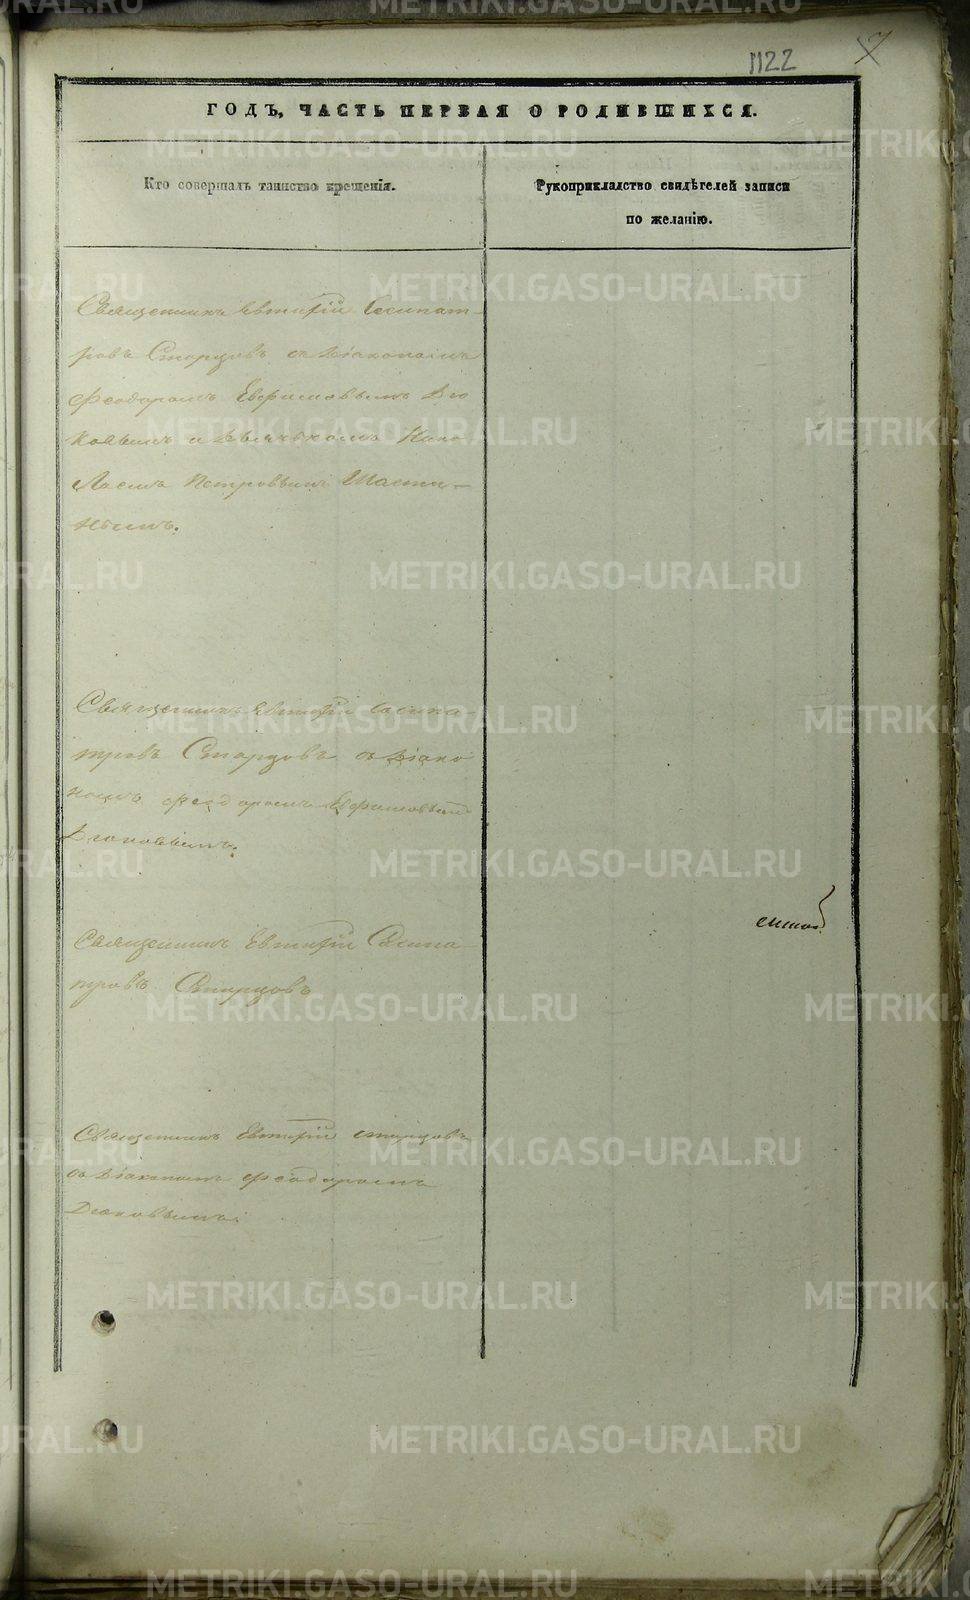 1122
7
ГОДЪ, ЧАСТЬ ПЕРВАЯ О РОДИВШИХСЯ.
Кто совершалъ таинство крещенія.
Рукоприкладство свидѣтелей записи
по желанію.
Священникъ Евтихій Сосипат-
ровъ Старцовъ съ діакономъ
Феодоромъ Евфимовымъ Дья
коновымъ и дьячькомъ Нико
лаемъ Петровымъ
нымъ.
Священникъ Евтихій Сосипа-
тровъ Старцовъ съ діако
номъ Феодоромъ Евфимовымъ
Священникъ Евтихій Сосипа
тровъ Старцовъ
Священникъ Евтихій Старцовъ
съ діакономъ Феодоромъ
METRIKI.GASO-URAL.RU